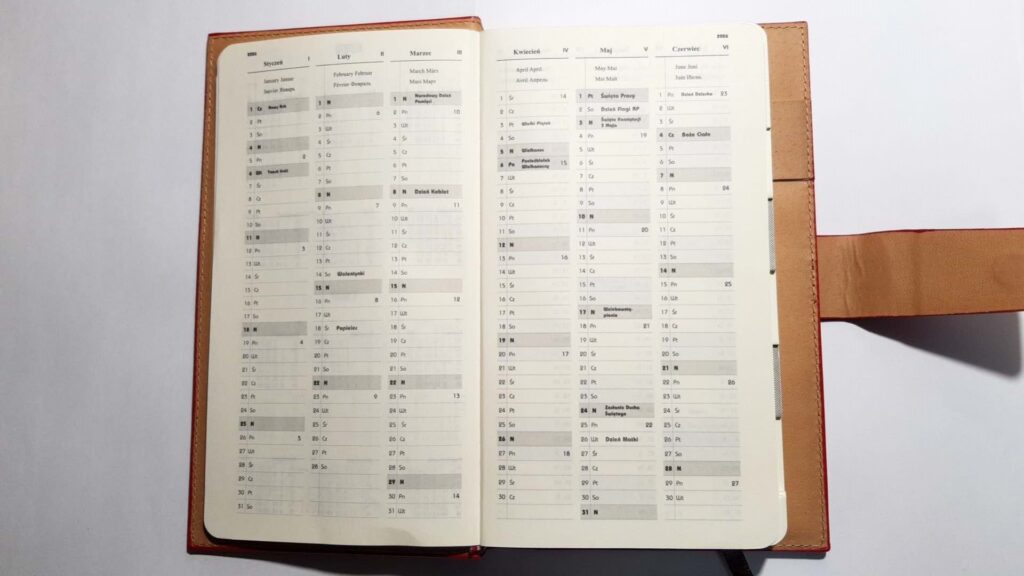 2026
Styczeń I
January Januar
Janvier Январь
1 Cz Nowy Rok
2 Pt
3 So
4 N
5 Pn 2
6 Wt Trzech Króli
7 Śr
8 Cz
9 Pt
10 So
11 N
12 Pn 3
13 Wt
14 Śr
15 Cz
16 Pt
17 So
18 N
19 Pn 4
20 Wt
21 Śr
22 Cz
23 Pt
24 So
25 N
26 Pn 5
27 Wt
28 Śr
29 Cz
30 Pt
31 So
Luty II
February Februar
Février Февраль
1 N
2 Pn 6
3 Wt
4 Śr
5 Cz
6 Pt
7 So
8 N
9 Pn 7
10 Wt
11 Śr
12 Cz
13 Pt
14 So Walentynki
15 N
16 Pn 8
17 Wt
18 Śr Popielec
19 Cz
20 Pt
21 So
22 N
23 Pn 9
24 Wt
25 Śr
26 Cz
27 Pt
28 So
Marzec III
March März
Mars Март
1 N Narodowy Dzień
Pamięci
2 Pn 10
3 Wt
4 Śr
5 Cz
6 Pt
7 So
8 N Dzień Kobiet
9 Pn 11
10 Wt
11 Śr
12 Cz
13 Pt
14 So
15 N
16 Pn 12
17 Wt
18 Śr
19 Cz
20 Pt
21 So
22 N
23 Pn 13
24 Wt
25 Śr
26 Cz
27 Pt
28 So
29 N
30 Pn 14
31 Wt
Kwiecień IV
April April
Avril Апрель
1 Śr 14
2 Cz
3 Pt Wielki Piątek
4 So
5 N Wielkanoc
6 Pn Poniedziałek 15
Wielkanocny
7 Wt
8 Śr
9 Cz
10 Pt
11 So
12 N
13 Pn 16
14 Wt
15 Śr
16 Cz
17 Pt
18 So
19 N
20 Pn 17
21 Wt
22 Śr
23 Cz
24 Pt
25 So
26 N
27 Pn 18
28 Wt
29 Śr
30 Cz
Maj V
May Mai
Mai Май
1 Pt Święto Pracy
2 So Dzień Flagi RP
3 N Święto Konstytucji
3 Maja
4 Pn 19
5 Wt
6 Śr
7 Cz
8 Pt
9 So
10 N
11 Pn 20
12 Wt
13 Śr
14 Cz
15 Pt
16 So
17 N Wniebowstą-
pienie
18 Pn 21
19 Wt
20 Śr
21 Cz
22 Pt
23 So
24 N Zesłanie Ducha
Świętego
25 Pn 22
26 Wt Dzień Matki
27 Śr
28 Cz
29 Pt
30 So
31 N
2026
Czerwiec VI
June Juni
Juin Июнь
1 Pn Dzień Dziecka 23
2 Wt
3 Śr
4 Cz Boże Ciało
5 Pt
6 So
7 N
8 Pn 24
9 Wt
10 Śr
11 Cz
12 Pt
13 So
14 N
15 Pn 25
16 Wt
17 Śr
18 Cz
19 Pt
20 So
21 N
22 Pn 26
23 Wt
24 Śr
25 Cz
26 Pt
27 So
28 N
29 Pn 27
30 Wt